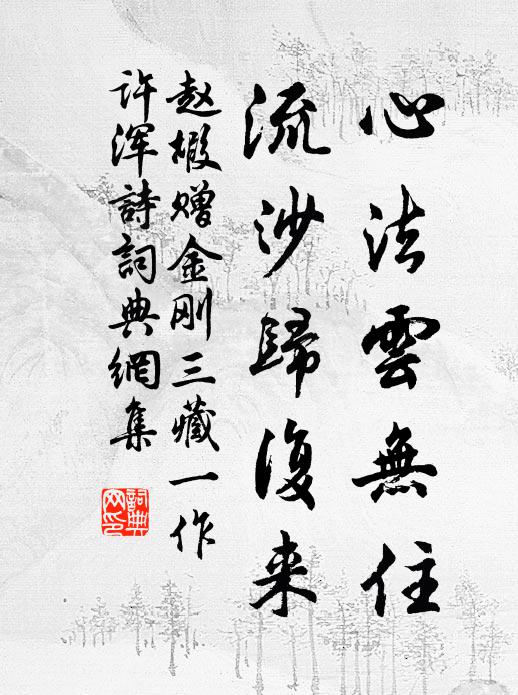 心法雲無住
流沙歸復来
赵嘏赠金刚三藏一作
许浑詩詞典網集
詞典网印